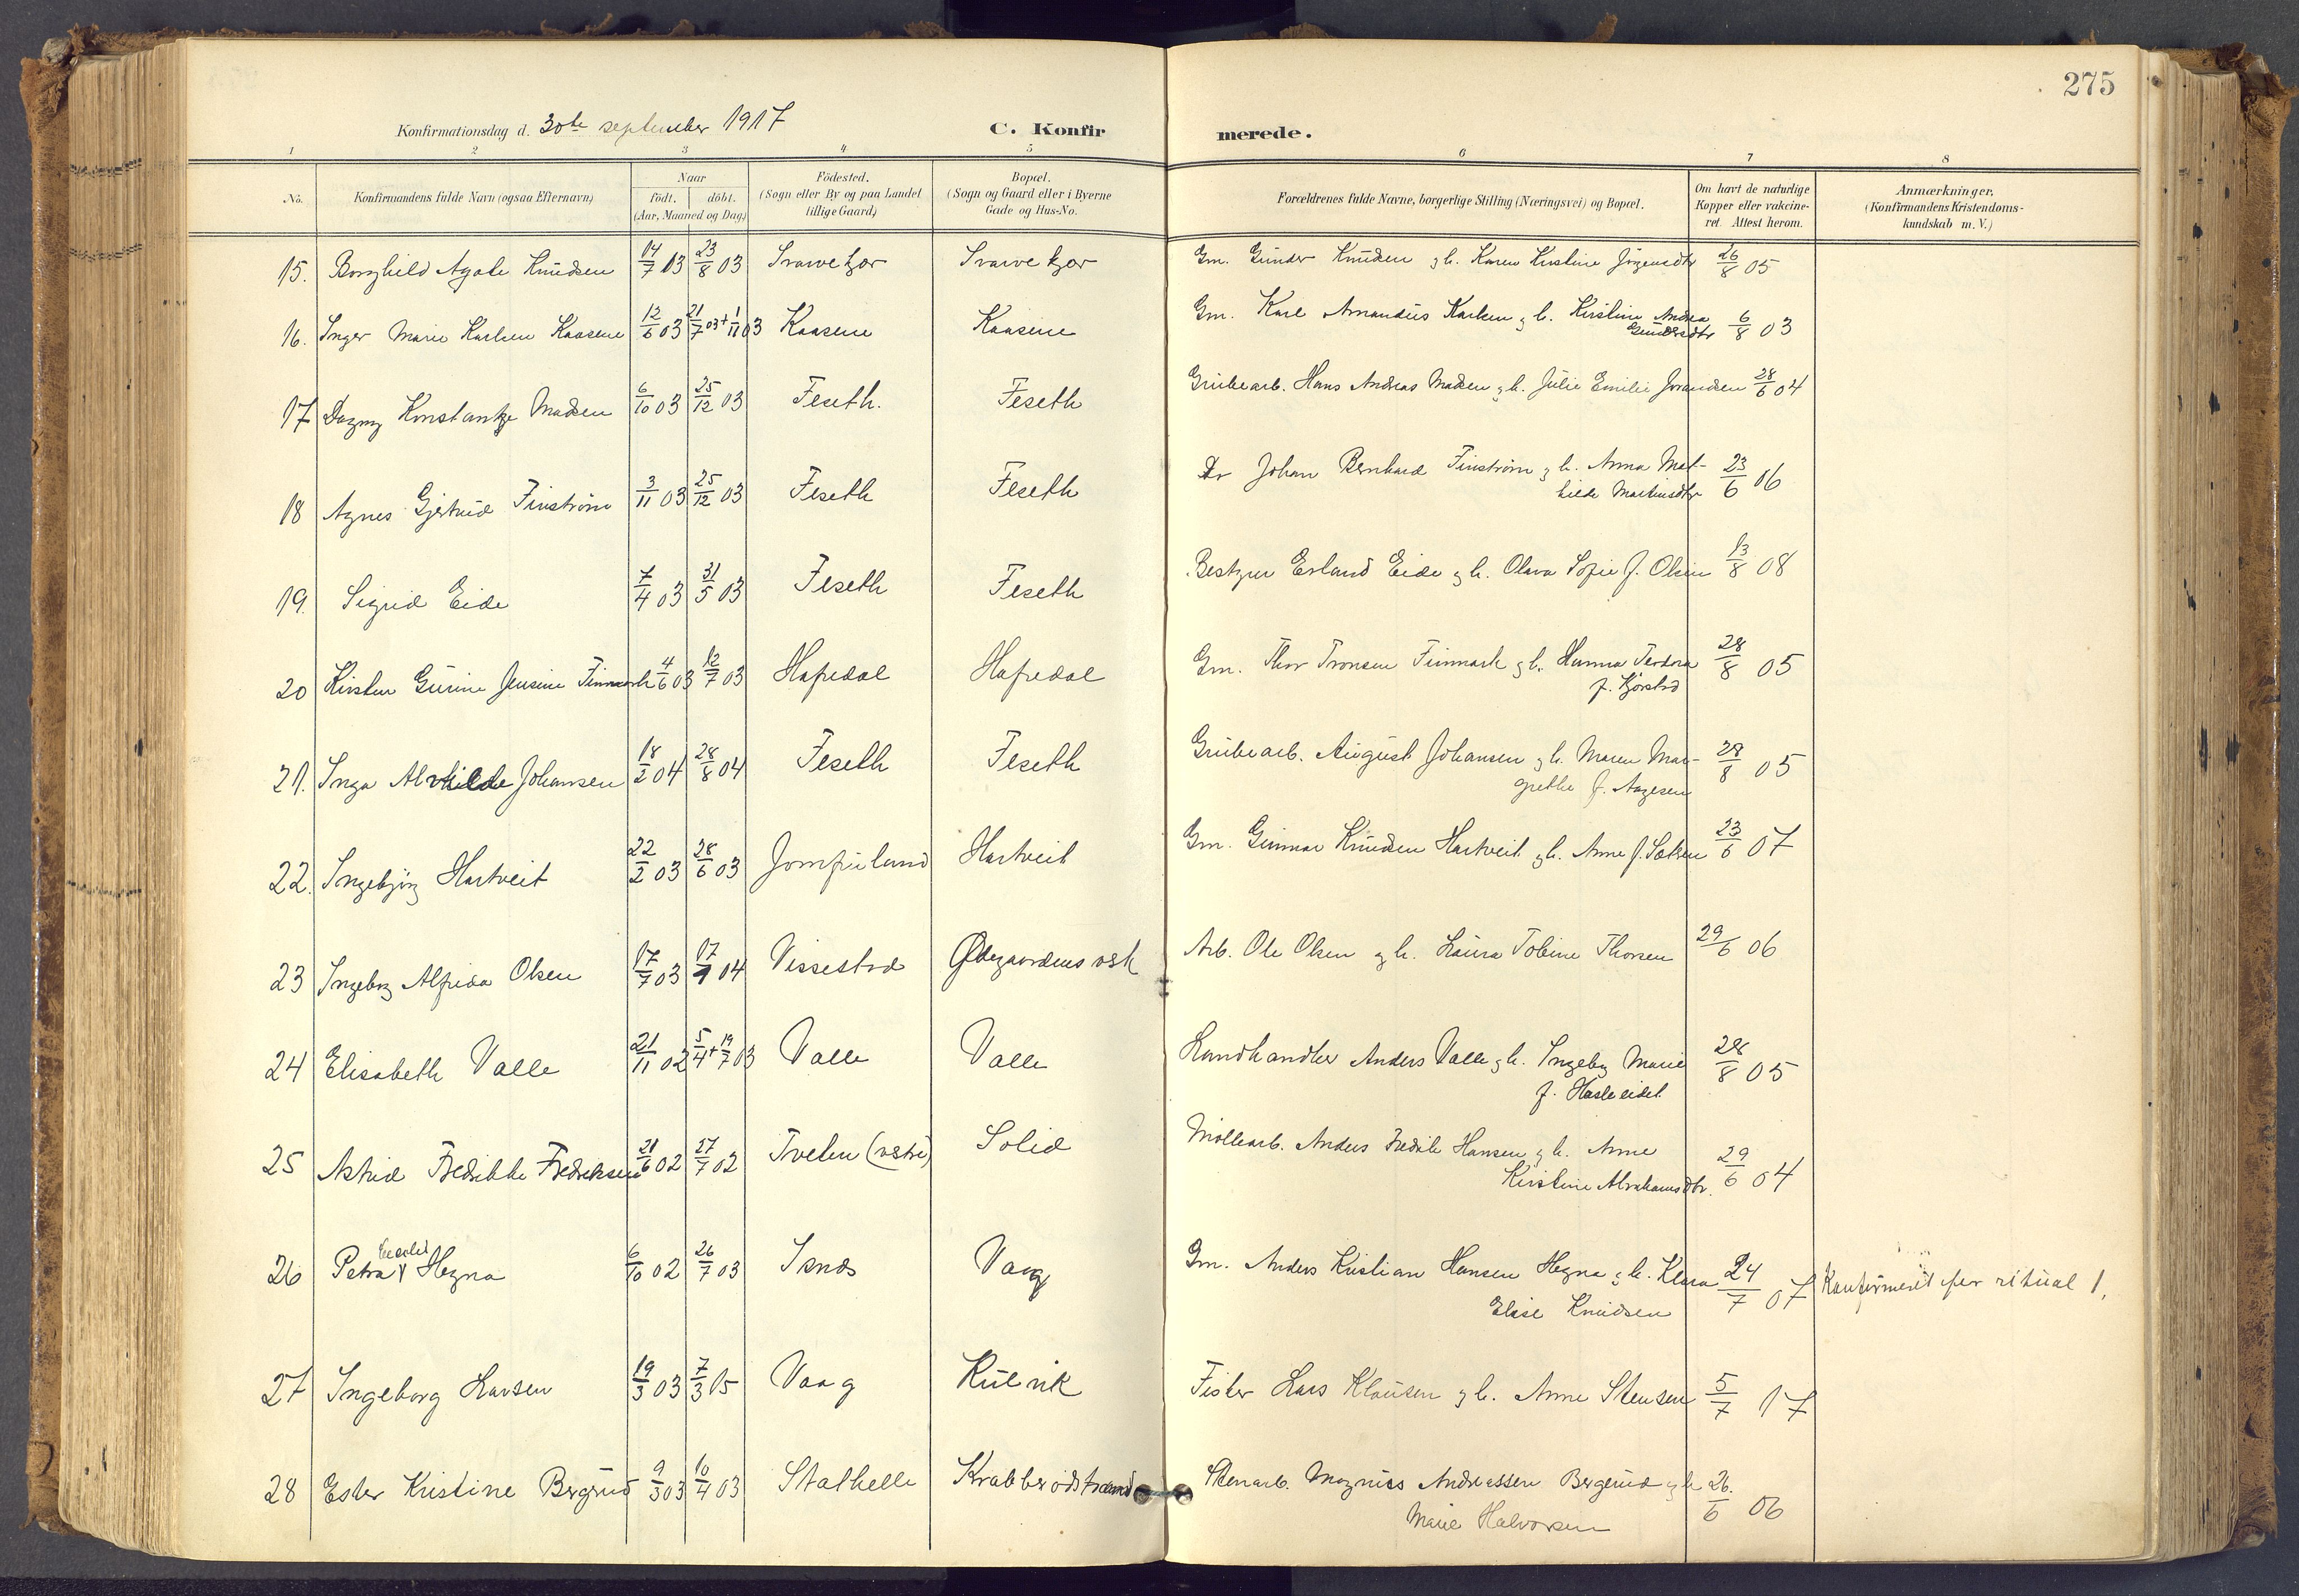 275
Konfirmationsdag d. 30te september 1917 C. Konfirmerede.
1 2 3 4 5 6 7 8
No. Konfirmandens fulde Navn (ogsaa Efternavn) Naar født. døbt. (Aar, Maaned og Dag) Fødested. (Sogn eller By og paa Landet tillige Gaard) Bopæl. (Sogn og Gaard eller i Byerne Gade og Hus-No. Forældrenes fulde Navne, borgerlige Stilling (Næringsvei) og Bopæl. Om havt de naturlige Kopper eller vakcineret. Attest herom. Anmærkninger, (Konfirmandens Kristendomskundskab m. V.)
15. Borghild Agate Knudsen 14/7 03 23/8 03 Gm. Gunder Knudsen g h. Karen Kristine Jörgensdtr 26/8 05
16. Inger Marie Karlsen Kaasene 12/6 03 21/7 03 + 1/11 03 Kaasene Kaasene Gm. Karl Amandus Karlsen g h. Kirstine Andrea
Gundersdtr 6/8 03
17 Dagny Konstantse Madsen 6/10 03 25/12 03 Feseth. Feseth Grubearb. Hans Andreas Madsen g h. Julie Emilie 28/6 04
18 Agnes Gjertrud Finström 3/11 03 25/12 03 Feseth Feseth Johan Bernhard Finström g h. Anna Mat-
hilde Martinsdtr 23/6 06
19. Sigrid Eide 7/4 03 31/5 03 Feseth Feseth Bestyrer Erland Eide g h. Olava Sofie f. Olsen 13/8 08
20 Kirsten Gurine Jensine Finmark 4/6 03 12/7 03 Hafredal Hafredal Gm. Thor Tronsen Finmark g h. Hanna Teodora
f. Kjørstad 28/8 05
21. Inga Alvhilde Johansen 18/2 04 28/8 04 Feseth Feseth Grubearb. August Johansen g h. Maren Mar-
grethe f. Aagesen 28/8 05
22. Ingebjörg Hartveit 22/2 03 28/6 03 Jomfruland Hartveit Gm. Gunnar Knudsen Hartveit g h. Anne f. 23/6 07
23 Ingeborg Alfrida Olsen 17/7 03 17/4 04 Vissestad Ødegaardens verk Arb. Ole Olsen g h. Laura Tobine Thorsen 29/6 06
24 Elisabeth Valle 21/11 02 5/4 + 19/7 03 Valle Valle Landhandler Anders Valle g h. Ingeborg Marie
f. Hasleeidet 28/8 05
25 Astrid Fredrikke Fredriksen 21/6 02 27/7 02 Tveten (vestre) Solid Möllearb. Anders Fredrik Hansen g h. Anne
Kirstine Abrahamsdtr. 29/6 04
26 Petra Hegna 6/10 02 26/7 03 Isnes Vaag Gm. Anders Kristian Hansen Hegna g h. Klara
Elise Knudsen 24/7 07 Konfirmert per ritual 1.
27 Ingeborg Larsen 19/3 03 7/3 15 Vaag Rülvik Fisker Lars Klausen g h. Anne Stensen 5/7 17
28 Ester Kristine Bergrud 9/3 03 10/4 03 Stathelle Krabberödstrand Stenarb. Magnus Andreassen Bergrud g h
Marie Halvorsen 26/6 06